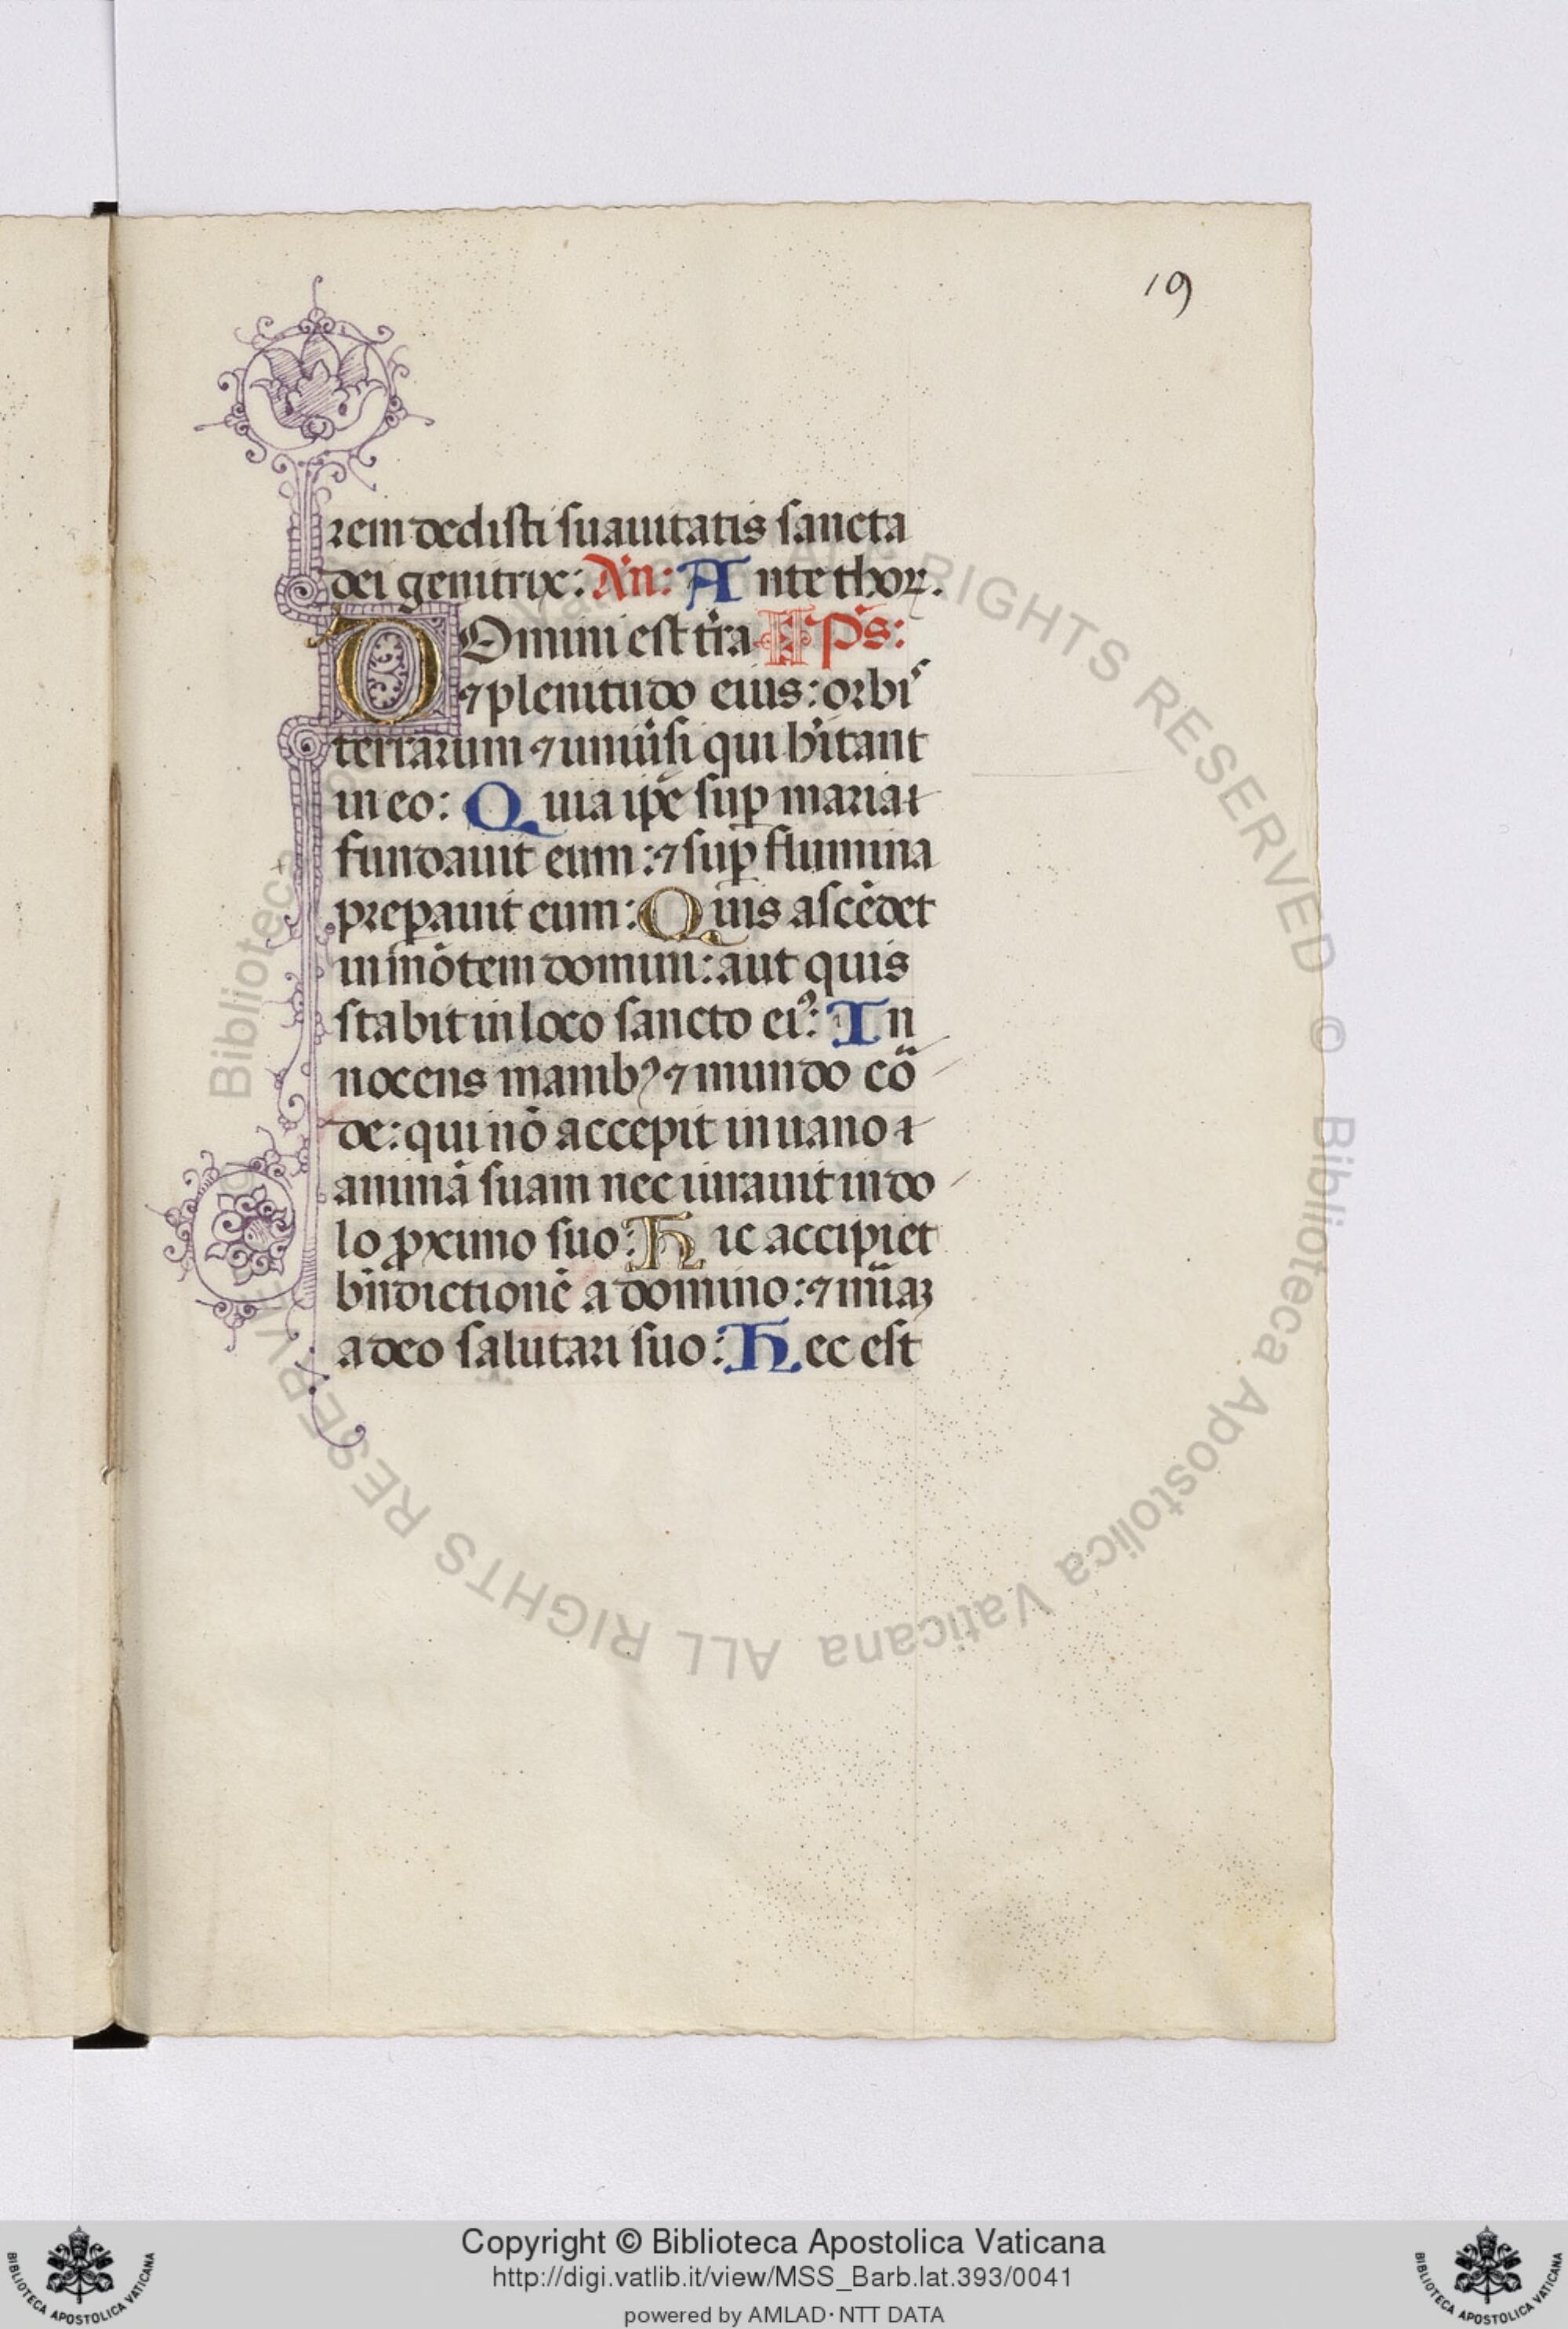 19
rem dedisti suauitatis sancta
dei genitrix: An: Ante thoꝝ.
DOmini est tr̃a Ps:
⁊ plenitudo eius: orbiˢ
terrarum ⁊ uniũsi qui hĩtant
in eo: Quia ip̃e suꝑ maria
fundauit eum: ⁊ suꝑ flumina
preꝑauit eum: Quis ascẽdet
in mõtem domini: aut quis
stabit in loco sancto eiꝰ: In
nocens manibꝰ ⁊ mundo cõ
de: qui nõ accepit in uano
animã suam nec iurauit in do
lo ꝓximo suo: Hic accipiet
bñdictionẽ a domino: ⁊ mĩaꝫ
a deo salutari suo: Hec est
© Biblioteca Apostolica Vaticana ALL RIGHTS RESERVED
Copyright © Biblioteca Apostolica Vaticana
http://digi.vatlib.it/view/MSS_Barb.lat.393/0041
powered by AMLAD·NTT DATA
BIBLIOTECA APOSTOLICA VATICANA
BIBLIOTECA APOSTOLICA VATICANA